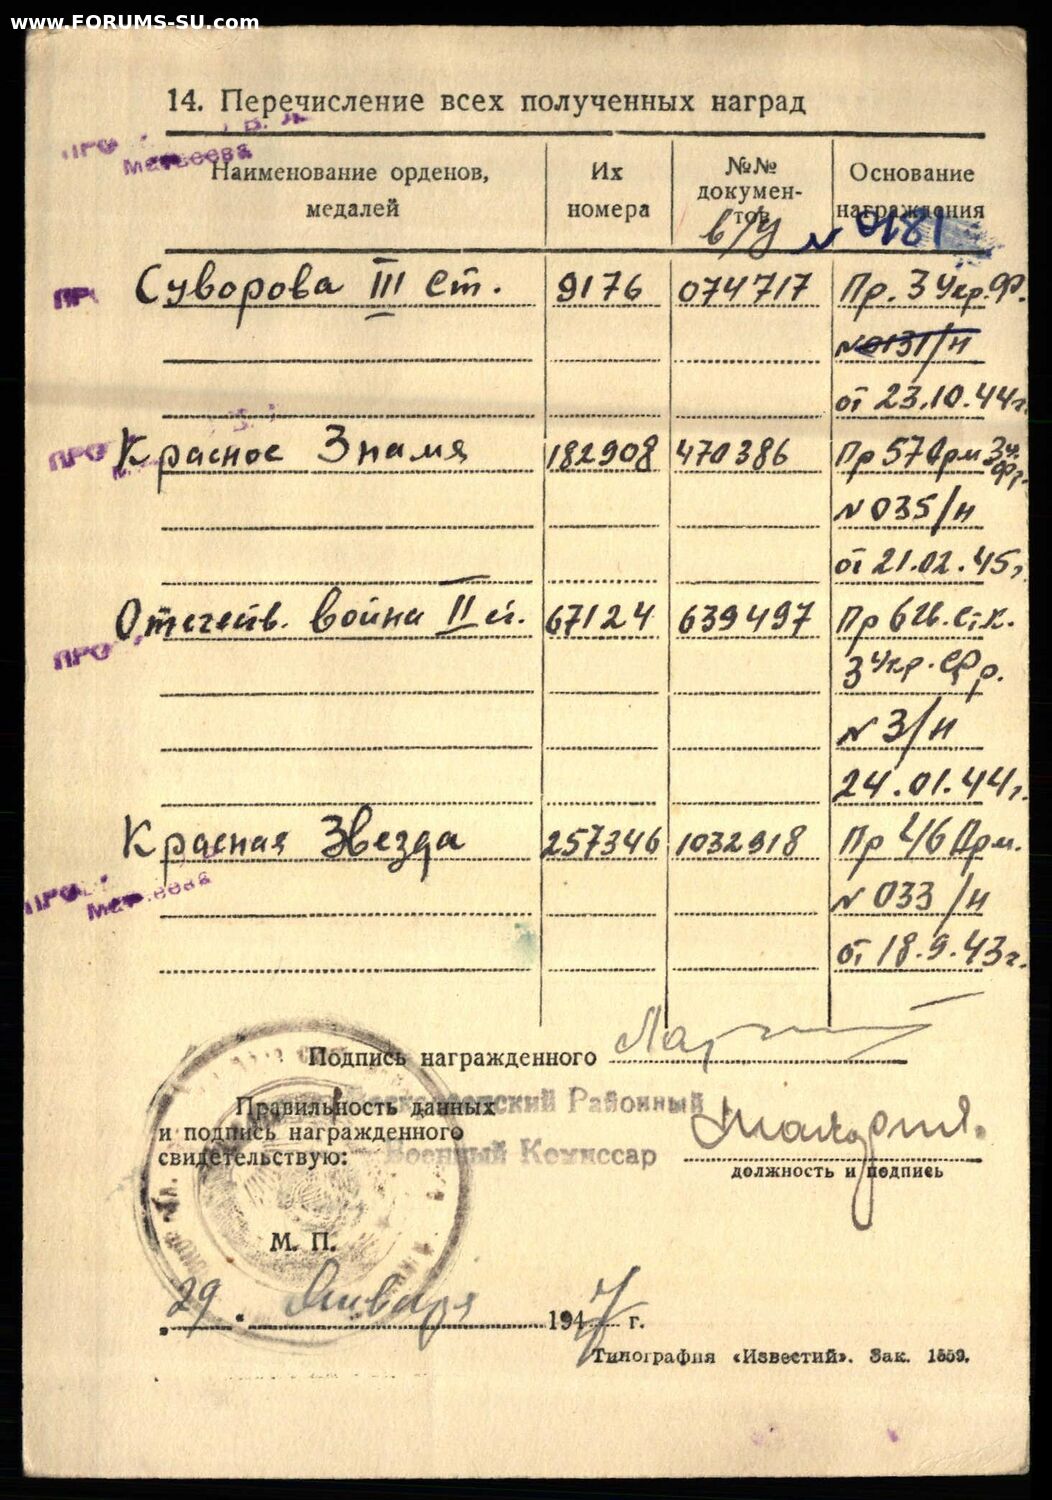 www.FORUMS-SU.com
14. Перечисление всех полученных наград
Матвеева
Наименование орденов, медалей
Их номера
№№ документов
Основание награждения
в/у № 0181
Суворова III ст. 9176 074717 Пр. 3 Укр. Ф.
№ 0131/н
от 23.10.44г.
Красное Знамя 182908 470386 Пр 57 Арм 3 у. фр.
№ 035/н
от 21.02.45г.
Отечеств. война II й. 67124 639497 Пр 6 гв. ст.к.
3 Укр. фр.
№ 3/н
24.01.44г.
Красная Звезда 257346 1032918 Пр 46 Арм.
Матвеева
№ 033/н
от 18.9.43г.
Подпись награжденного
Правильность данных
и подпись награжденного
свидетельствую:
Районный
Военный Комиссар
должность и подпись
М. П.
„29" Января 1947 г.
Типография «Известий». Зак. 1559.